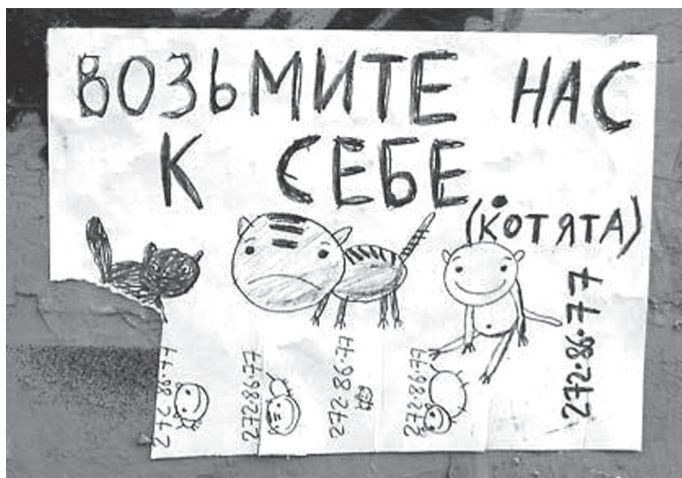 ВОЗЬМИТЕ НАС
К СЕБЕ.
(КОТЯТА)
272-86-77
272 86 77
272 86 77
272 86 77
272 86 77